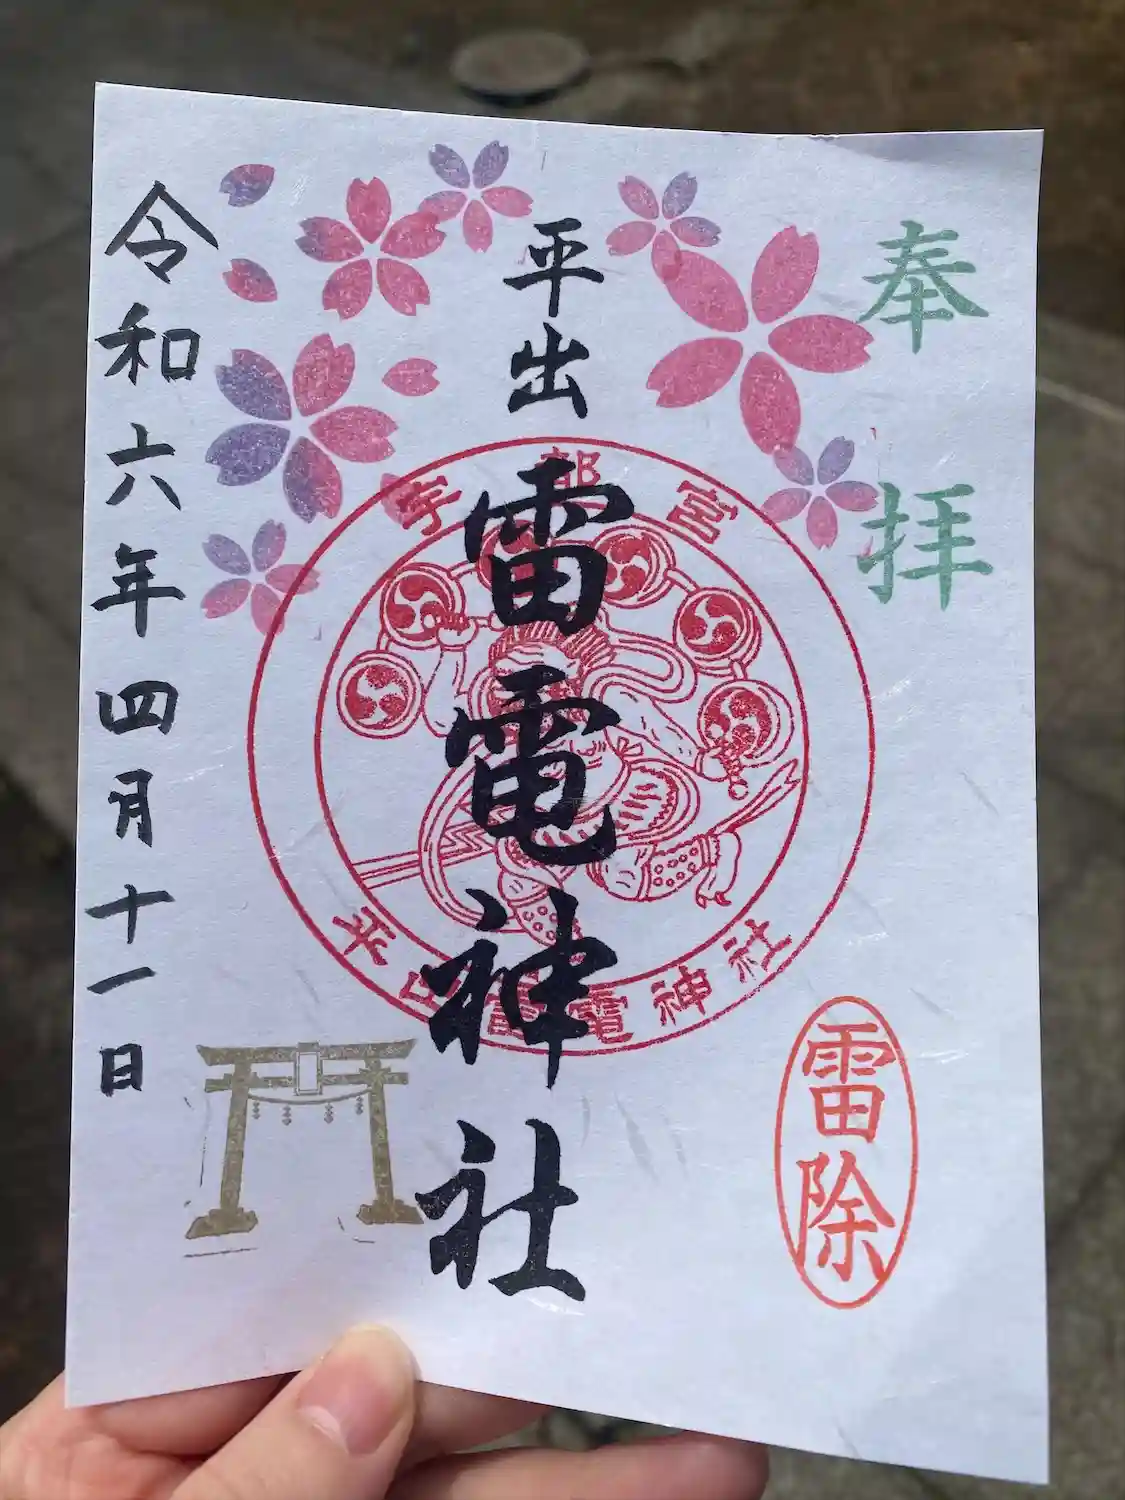 奉拝
平出
雷電神社
令和六年四月十一日
宇都宮
平出雷電神社
雷除